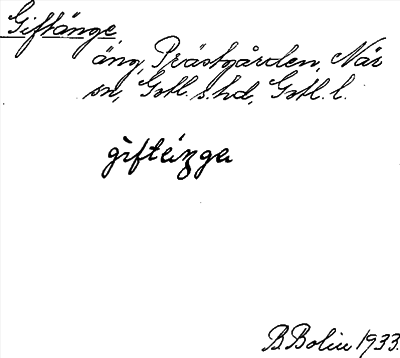 Giftänge
äng, Prästgården, När
sn, Gotl. s. hd, Gotl. l.
gìftéi̯ŋga
B Bolin 1933.